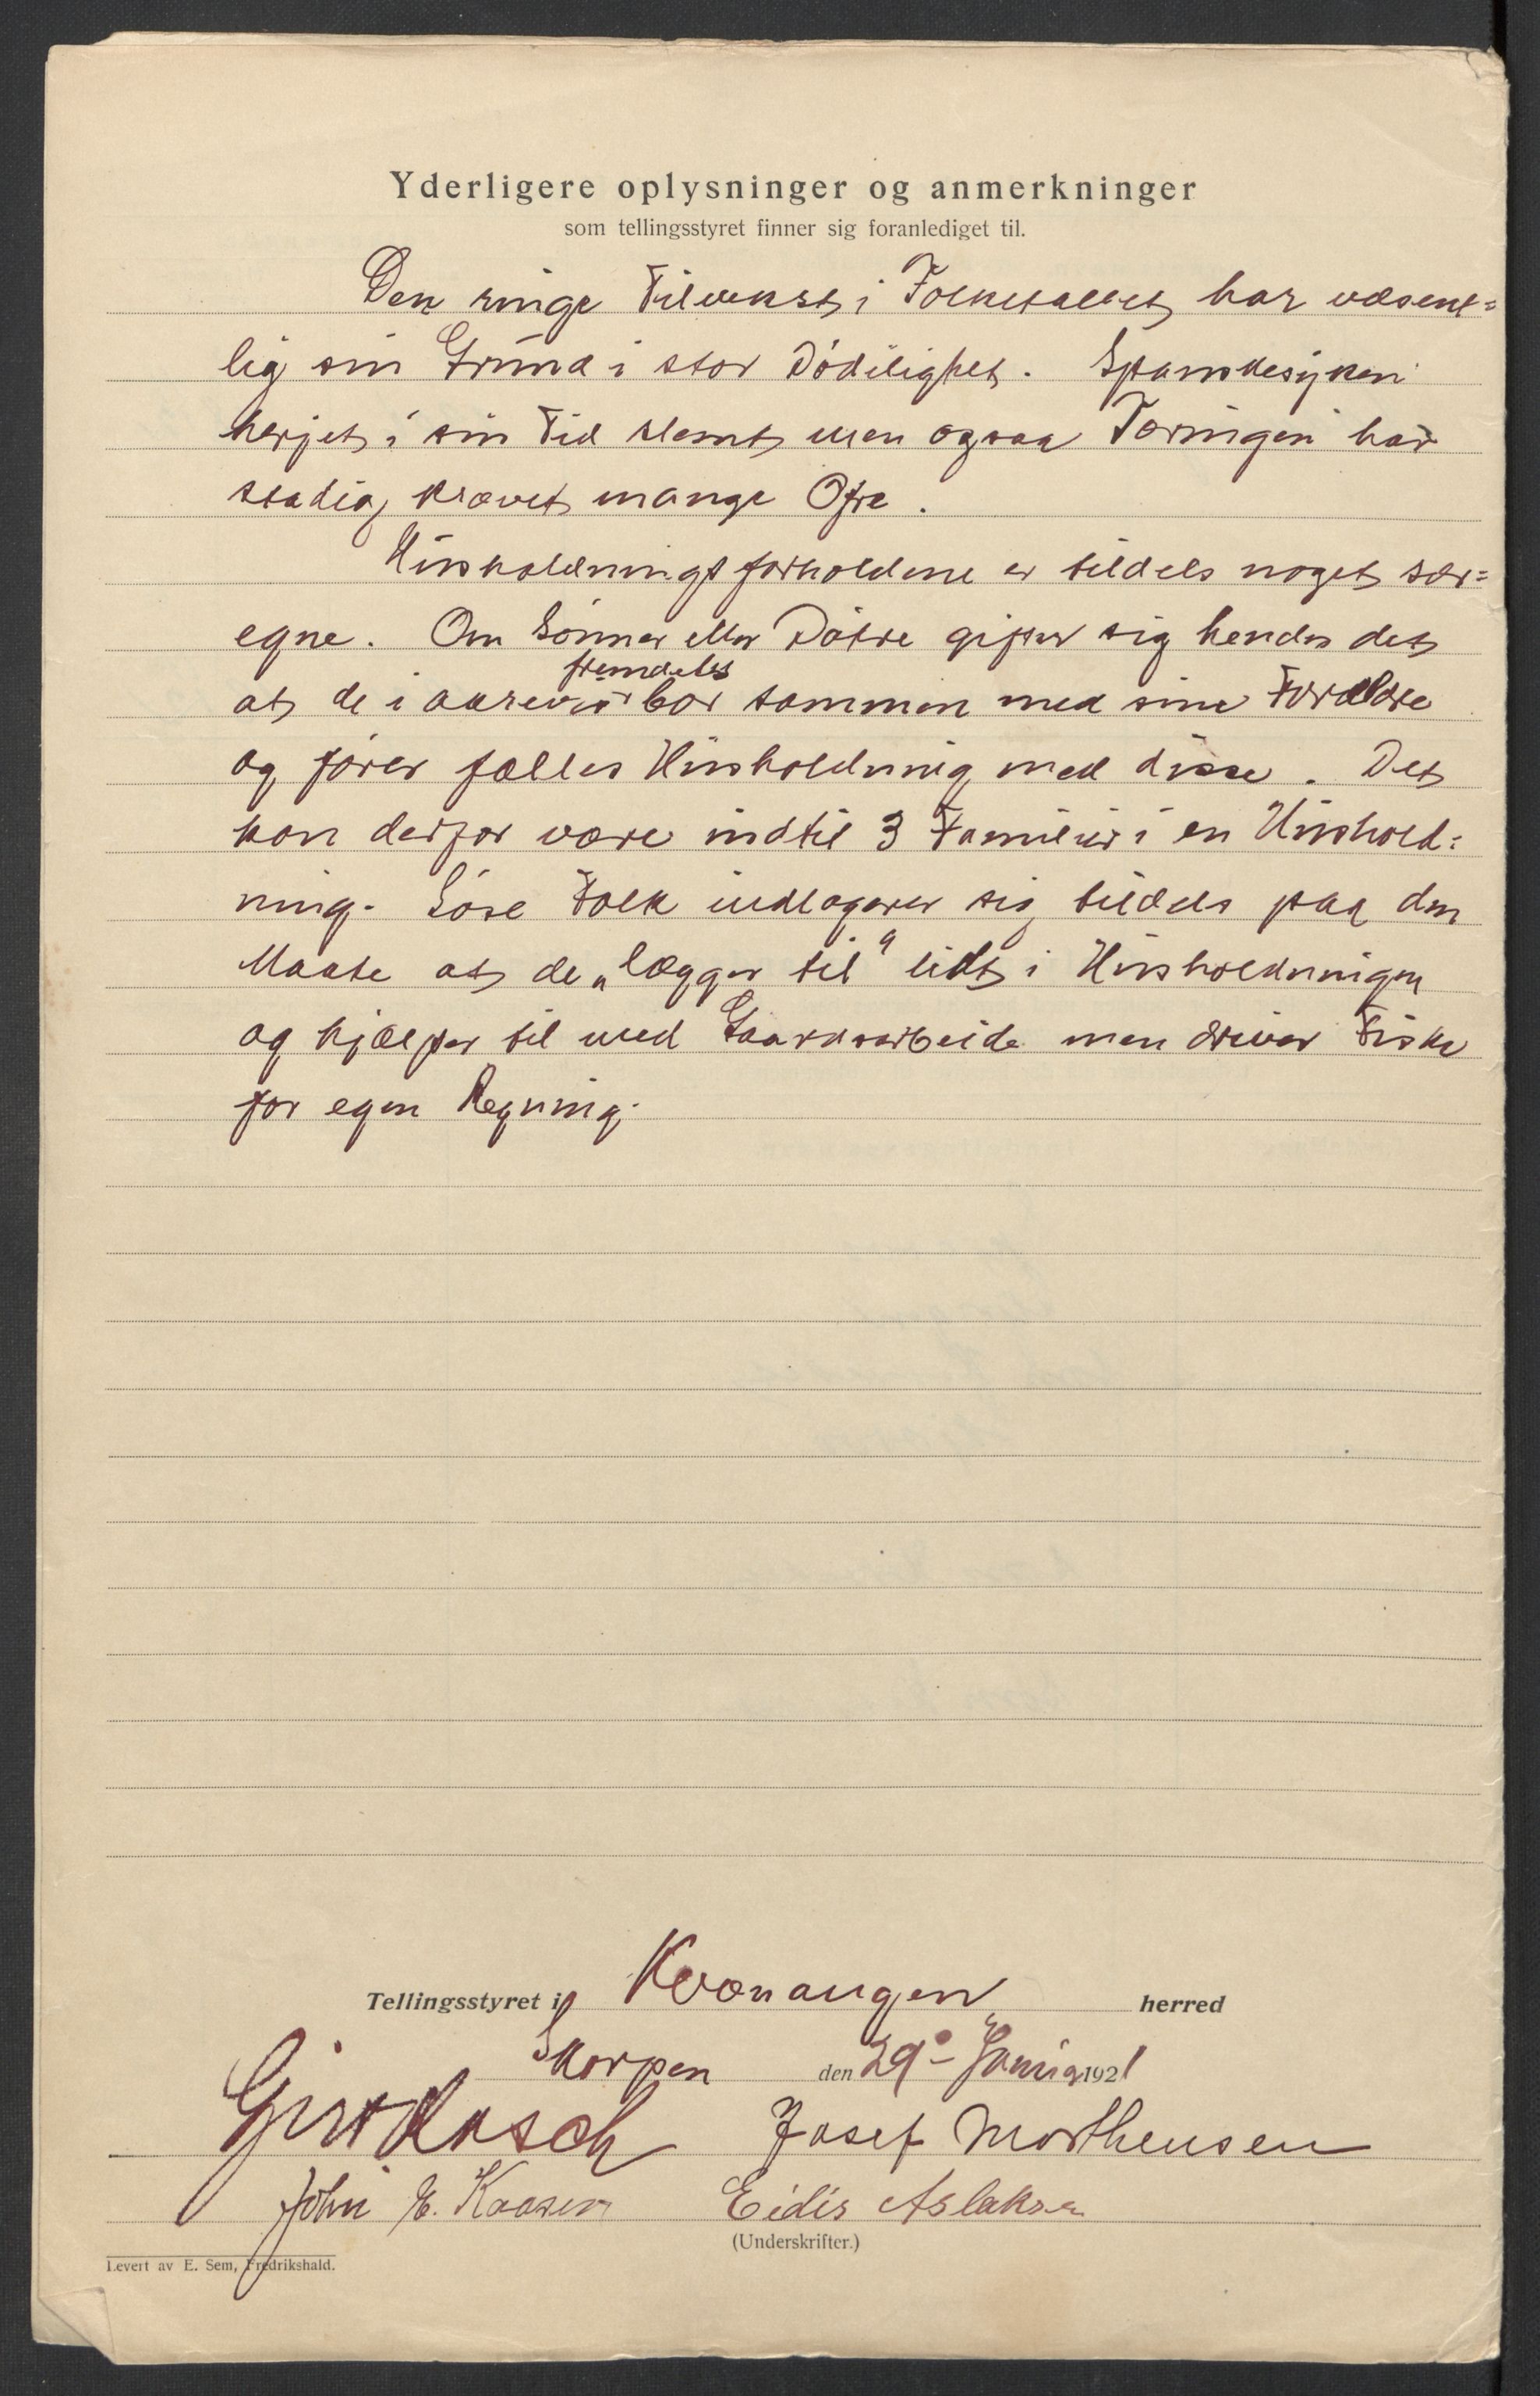 Yderligere oplysninger og anmerkninger
som tellingsstyret finner sig foranlediget til.
Den ringe Tilvekst i Folketallet har væsent=
lig sin Grund i stor Dödelighet. Spanskesyken
herjet i sin Tid slemt men ogsaa Tæringen har
stadig krævet mange Ofre.
Husholdningsforholdene er tildels noget sær=
egne. Om Sönner eller Døtre gifter sig hender det
fremdeles
at de i aarevis bor sammen med sine Forældre
og fører fælles Husholdning med disse. Det
kan derfor være indtil 3 Familier i en Hushold=
ning. Löse Folk indlogerer sig tildels paa den
Maate at de „lægger til“ lidt i Husholdningen
og hjælper til med Gaardsarbeide men driver Fiske
for egen Regning.
Tellingsstyret i Kvænangen herred
Skorpen den 29 Januar 1921
Josef Morthensen
John E. Kaasen Eidis Aslaksen
(Underskrifter.)
Levert av E. Sem, Fredrikshald.